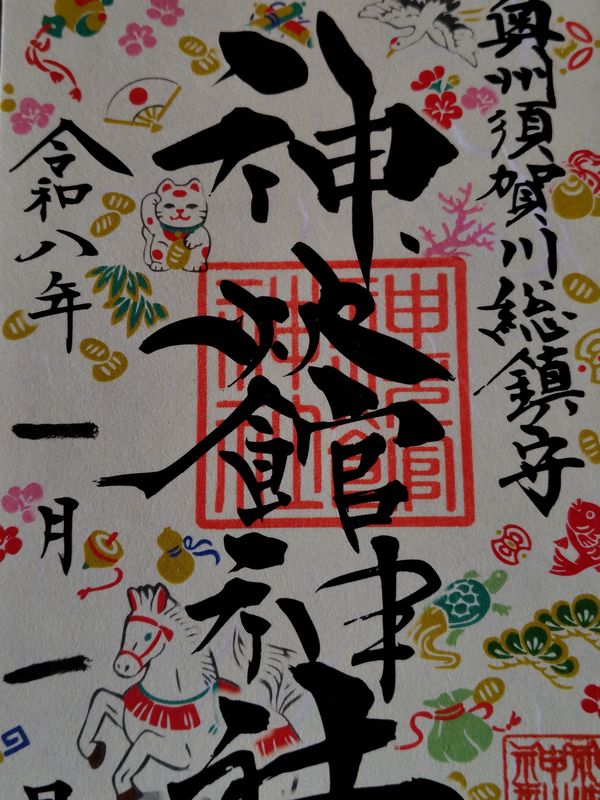 奥州須賀川総鎮守
神炊館神社
令和八年一月一日
神炊館
神社